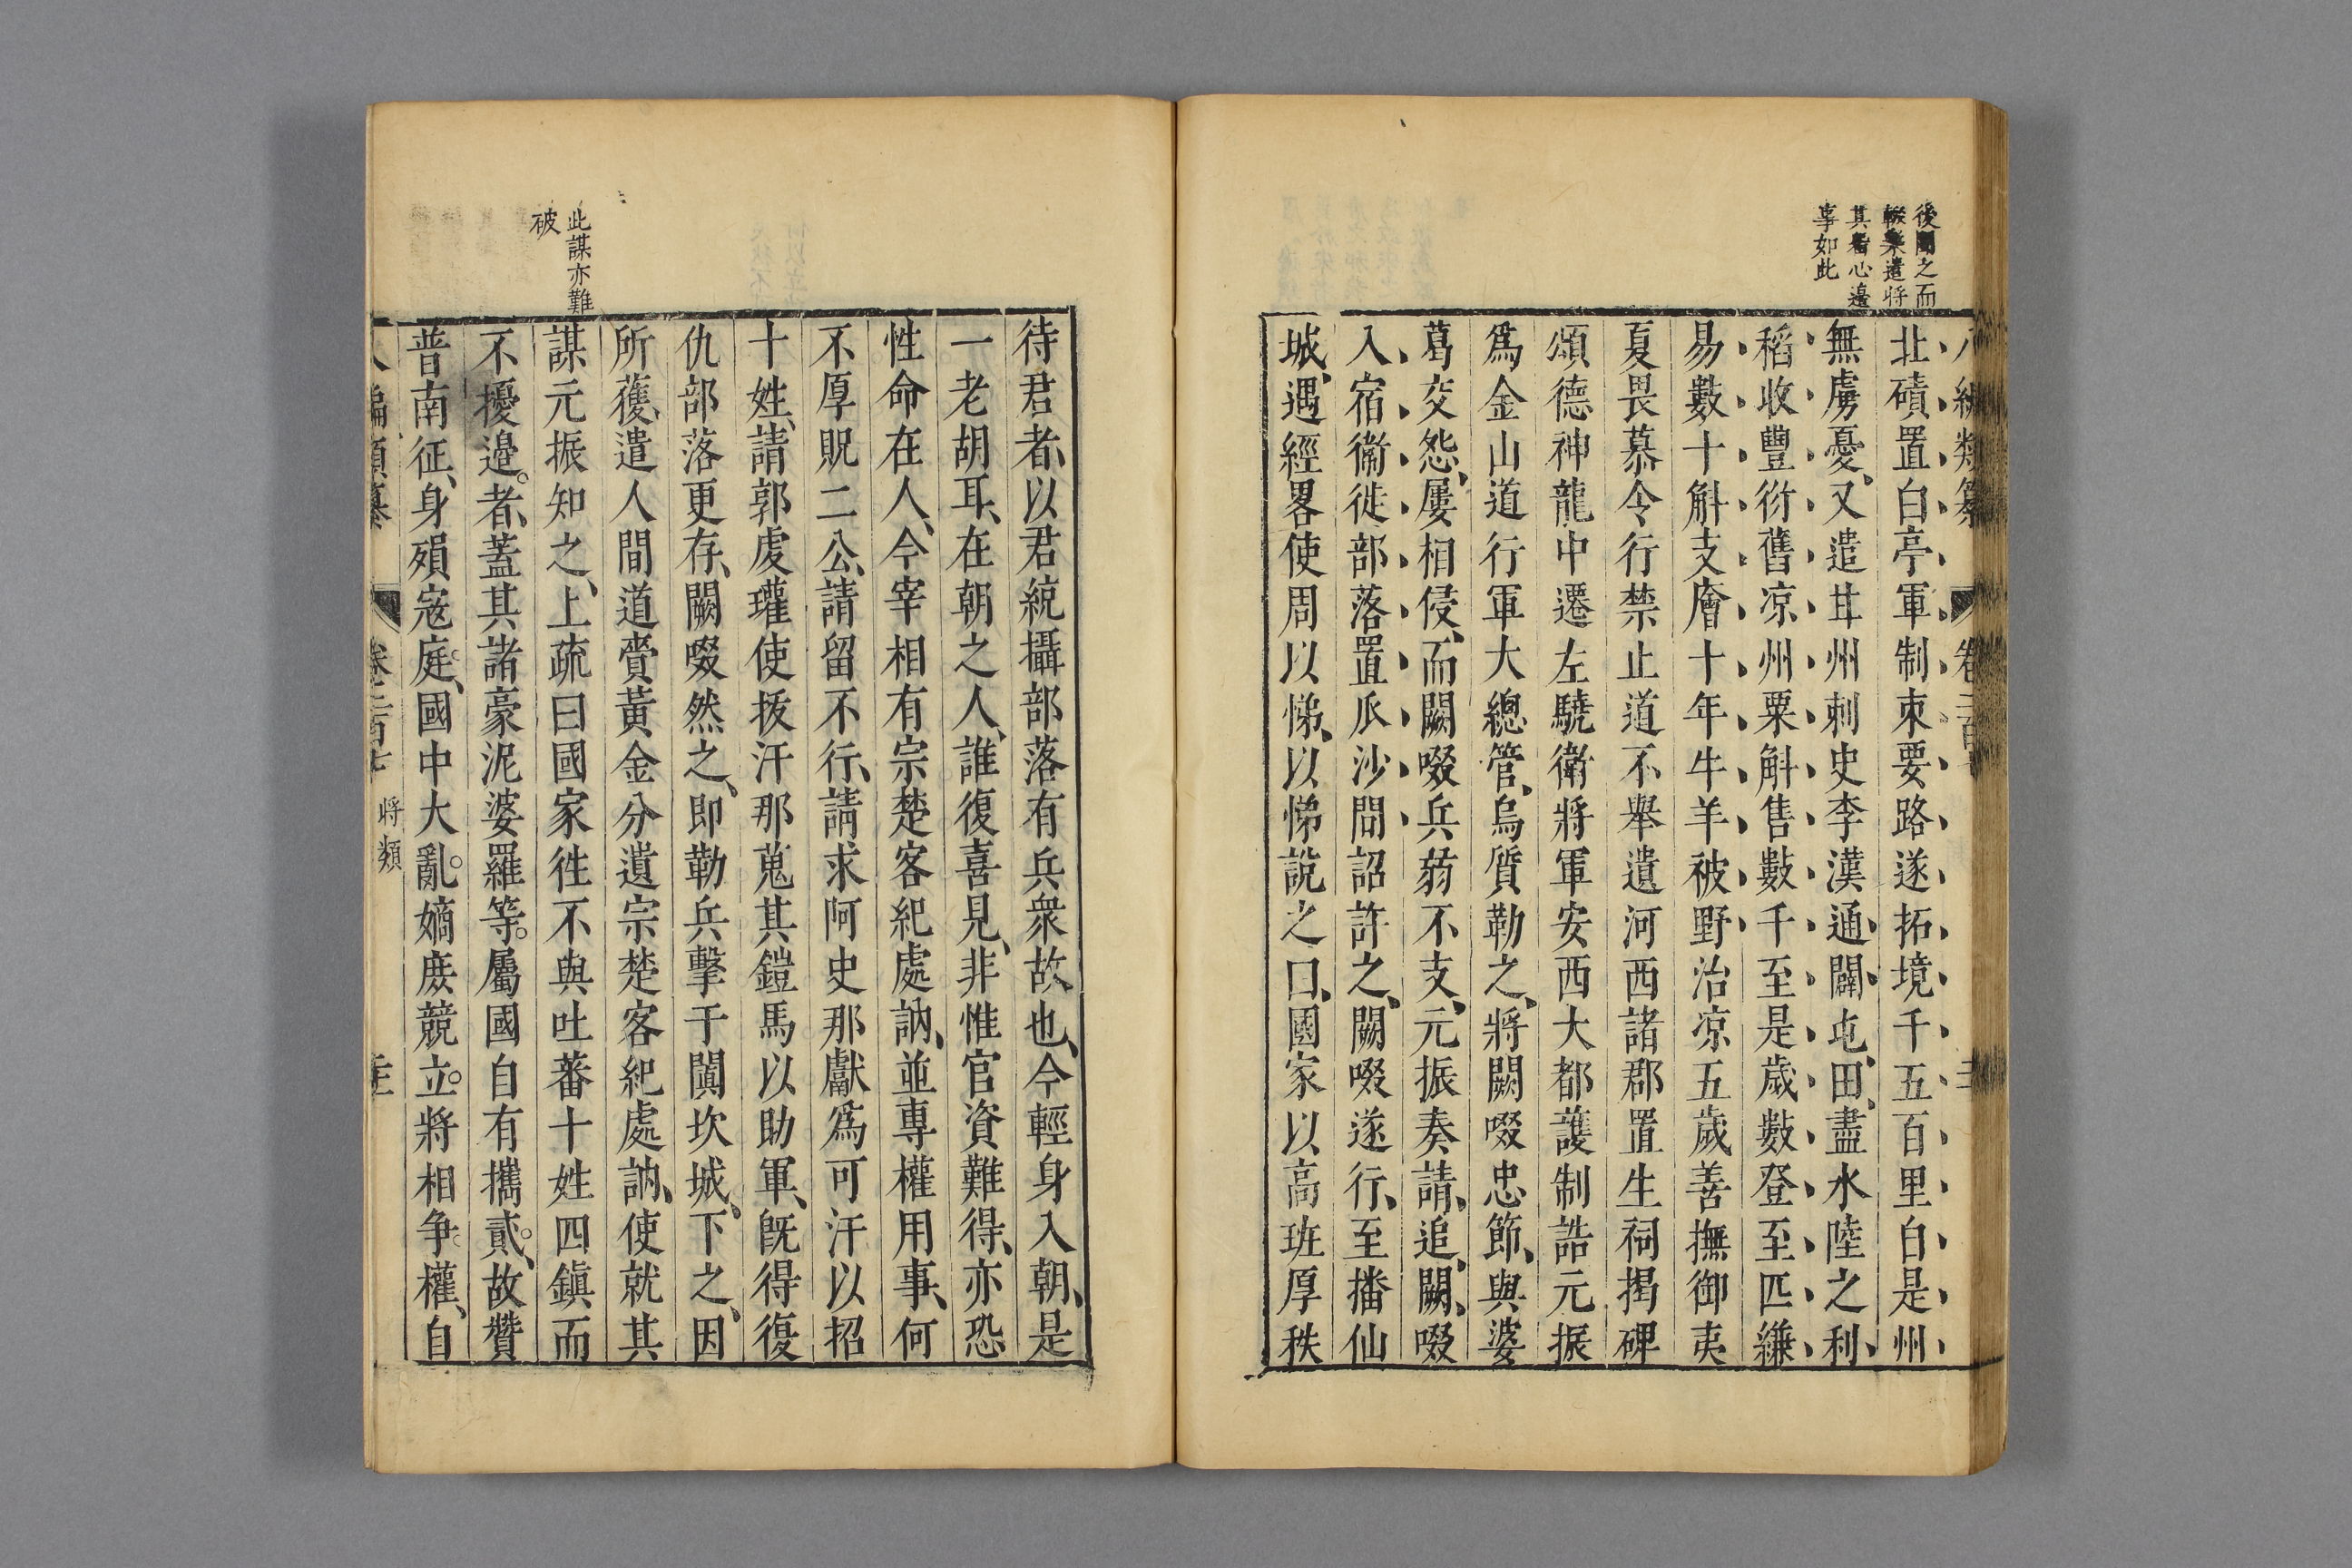 後聞之而
輟樂遣將
其畱心邉
事如此
八編類纂 卷二百七
北磧置白亭軍制束要路遂拓境千五百里自是州
無虜憂又遣甘州刺史李漢通闢屯田盡水陸之利
稻收豐衍舊凉州粟斛售數千至是歲數登至匹縑
易數十斛支廥十年牛羊被野治凉五歲善撫御夷
夏畏慕令行禁止道不舉遺河西諸郡置生祠揭碑
頌德神龍中遷左驍衛將軍安西大都護制誥元振
爲金山道行軍大總管烏質勒之將闕啜忠節與婆
葛交怨屢相侵而闕啜兵弱不支元振奏請追闕啜
入宿衛徙部落置瓜沙間詔許之闕啜遂行至播仙
城遇經畧使周以悌以悌說之曰國家以高班厚秩
待君者以君統攝部落有兵衆故也今輕身入朝是
一老胡耳在朝之人誰復喜見非惟官資難得亦恐
性命在人今宰相有宗楚客紀處訥並專權用事何
不厚貺二公請留不行請求阿史那獻爲可汗以招
十姓請郭虔瓘使拔汗那蒐其鎧馬以助軍旣得復
仇部落更存闕啜然之即勒兵擊于闐坎城下之因
所獲遣人間道賫黃金分遺宗楚客紀處訥使就其
謀元振知之上疏曰國家徃不與吐蕃十姓四鎭而
不擾邉者蓋其諸豪泥婆羅等屬國自有攜貳故贊
普南征身殞寇庭國中大亂嫡庶競立將相争權自
此謀亦難
破
八編類纂 卷二百七 將類